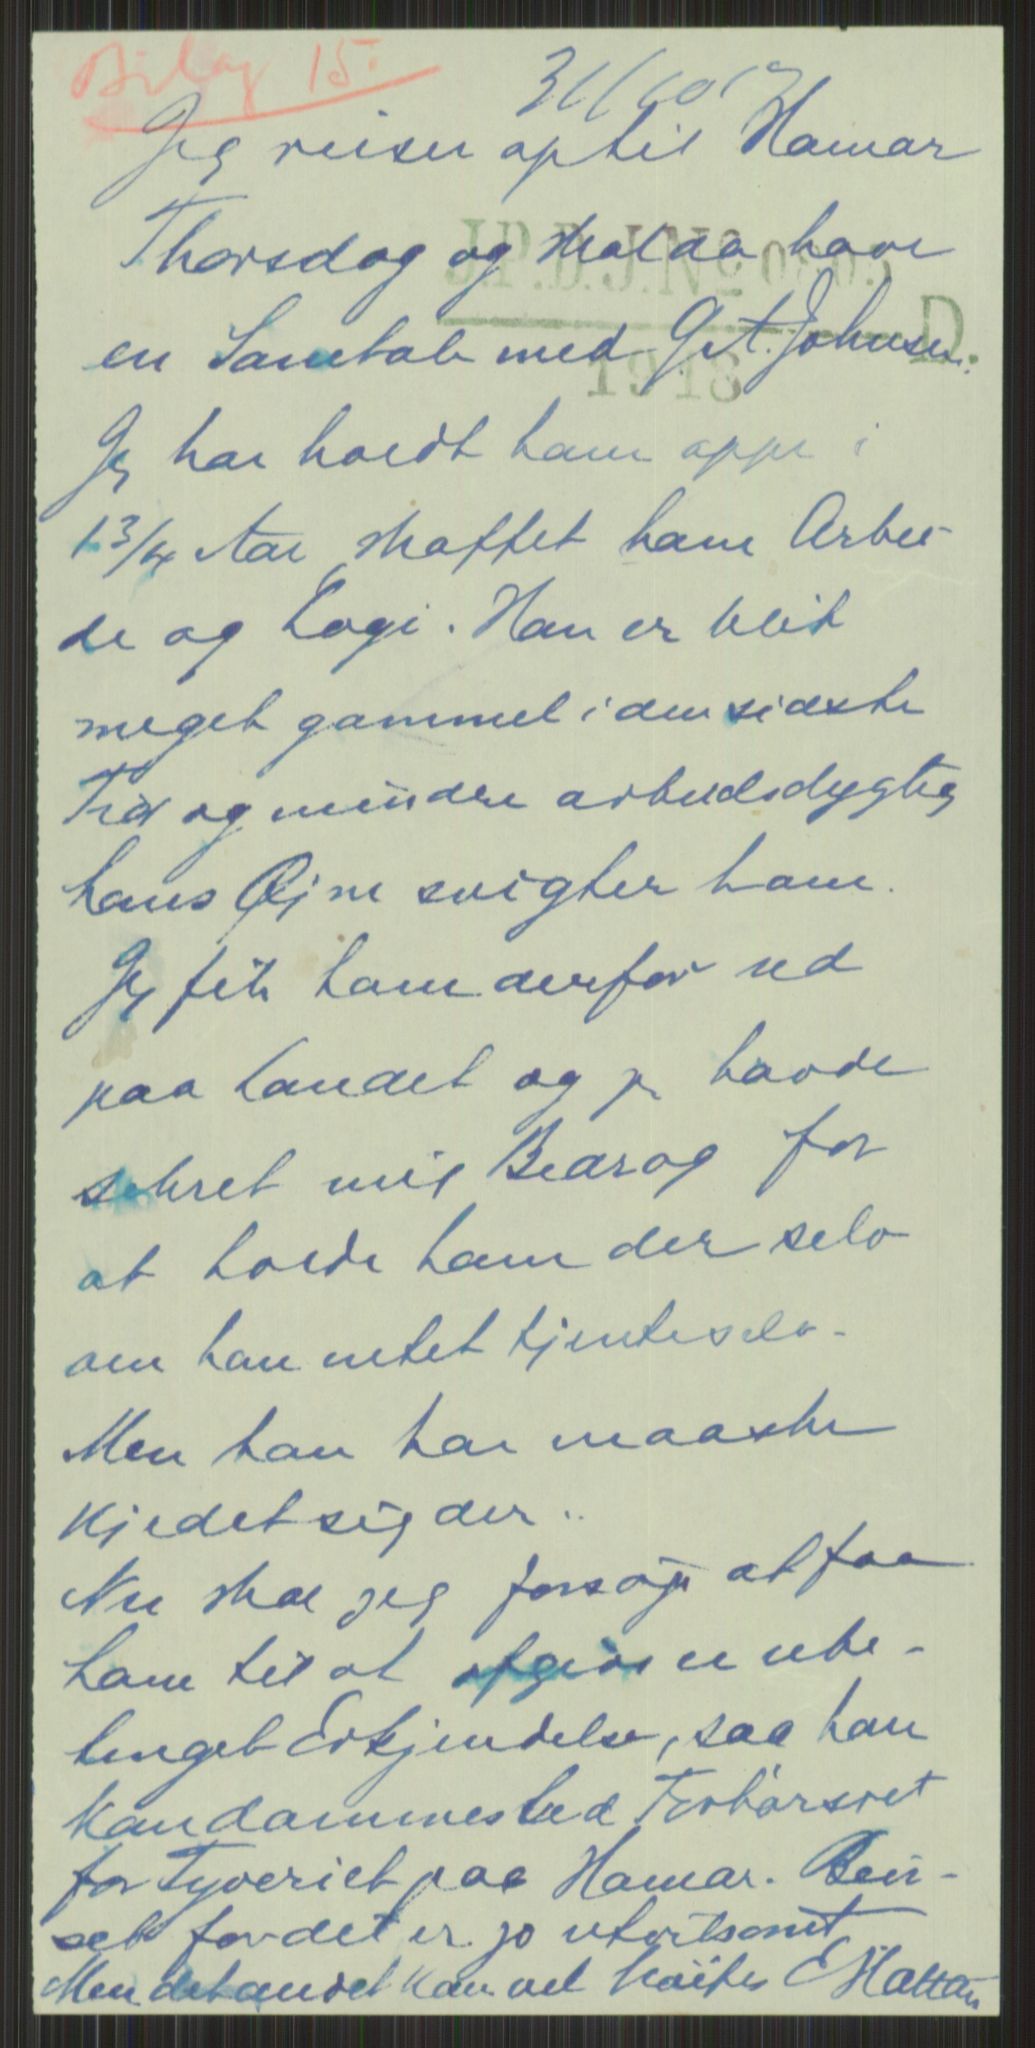 Bilag 15.
31/10 17
Jeg reiser op til Hamar
J.P.D.J. No 0
Thorsdag og skal da have
en Samtale med G. A. Johnsen.
D.
1918
Jeg har holdt ham oppe i
1 3/4 Aar skaffet ham Arbei-
de og Logi. Han er bleit
meget gammel i den sidste
Tid og mindre arbeidsdygtig
hans Øjne svigter ham.
Jeg fik ham derfor ud
paa Landet og jeg havde
sikret mig Bidrag for
at holde ham der selv
om han intet tjente selv.
Men han har maaske
kjedet sig der..
Nu skal jeg forsøge at faa
ham til at afgive en ube-
tinget Erkjendelse, saa han
kan dømmes ved Forhørsret
for Tyveriet paa Hamar. Bevi-
set for det er jo utvilsomt
Men det andet kan vel hæftes E Hattan